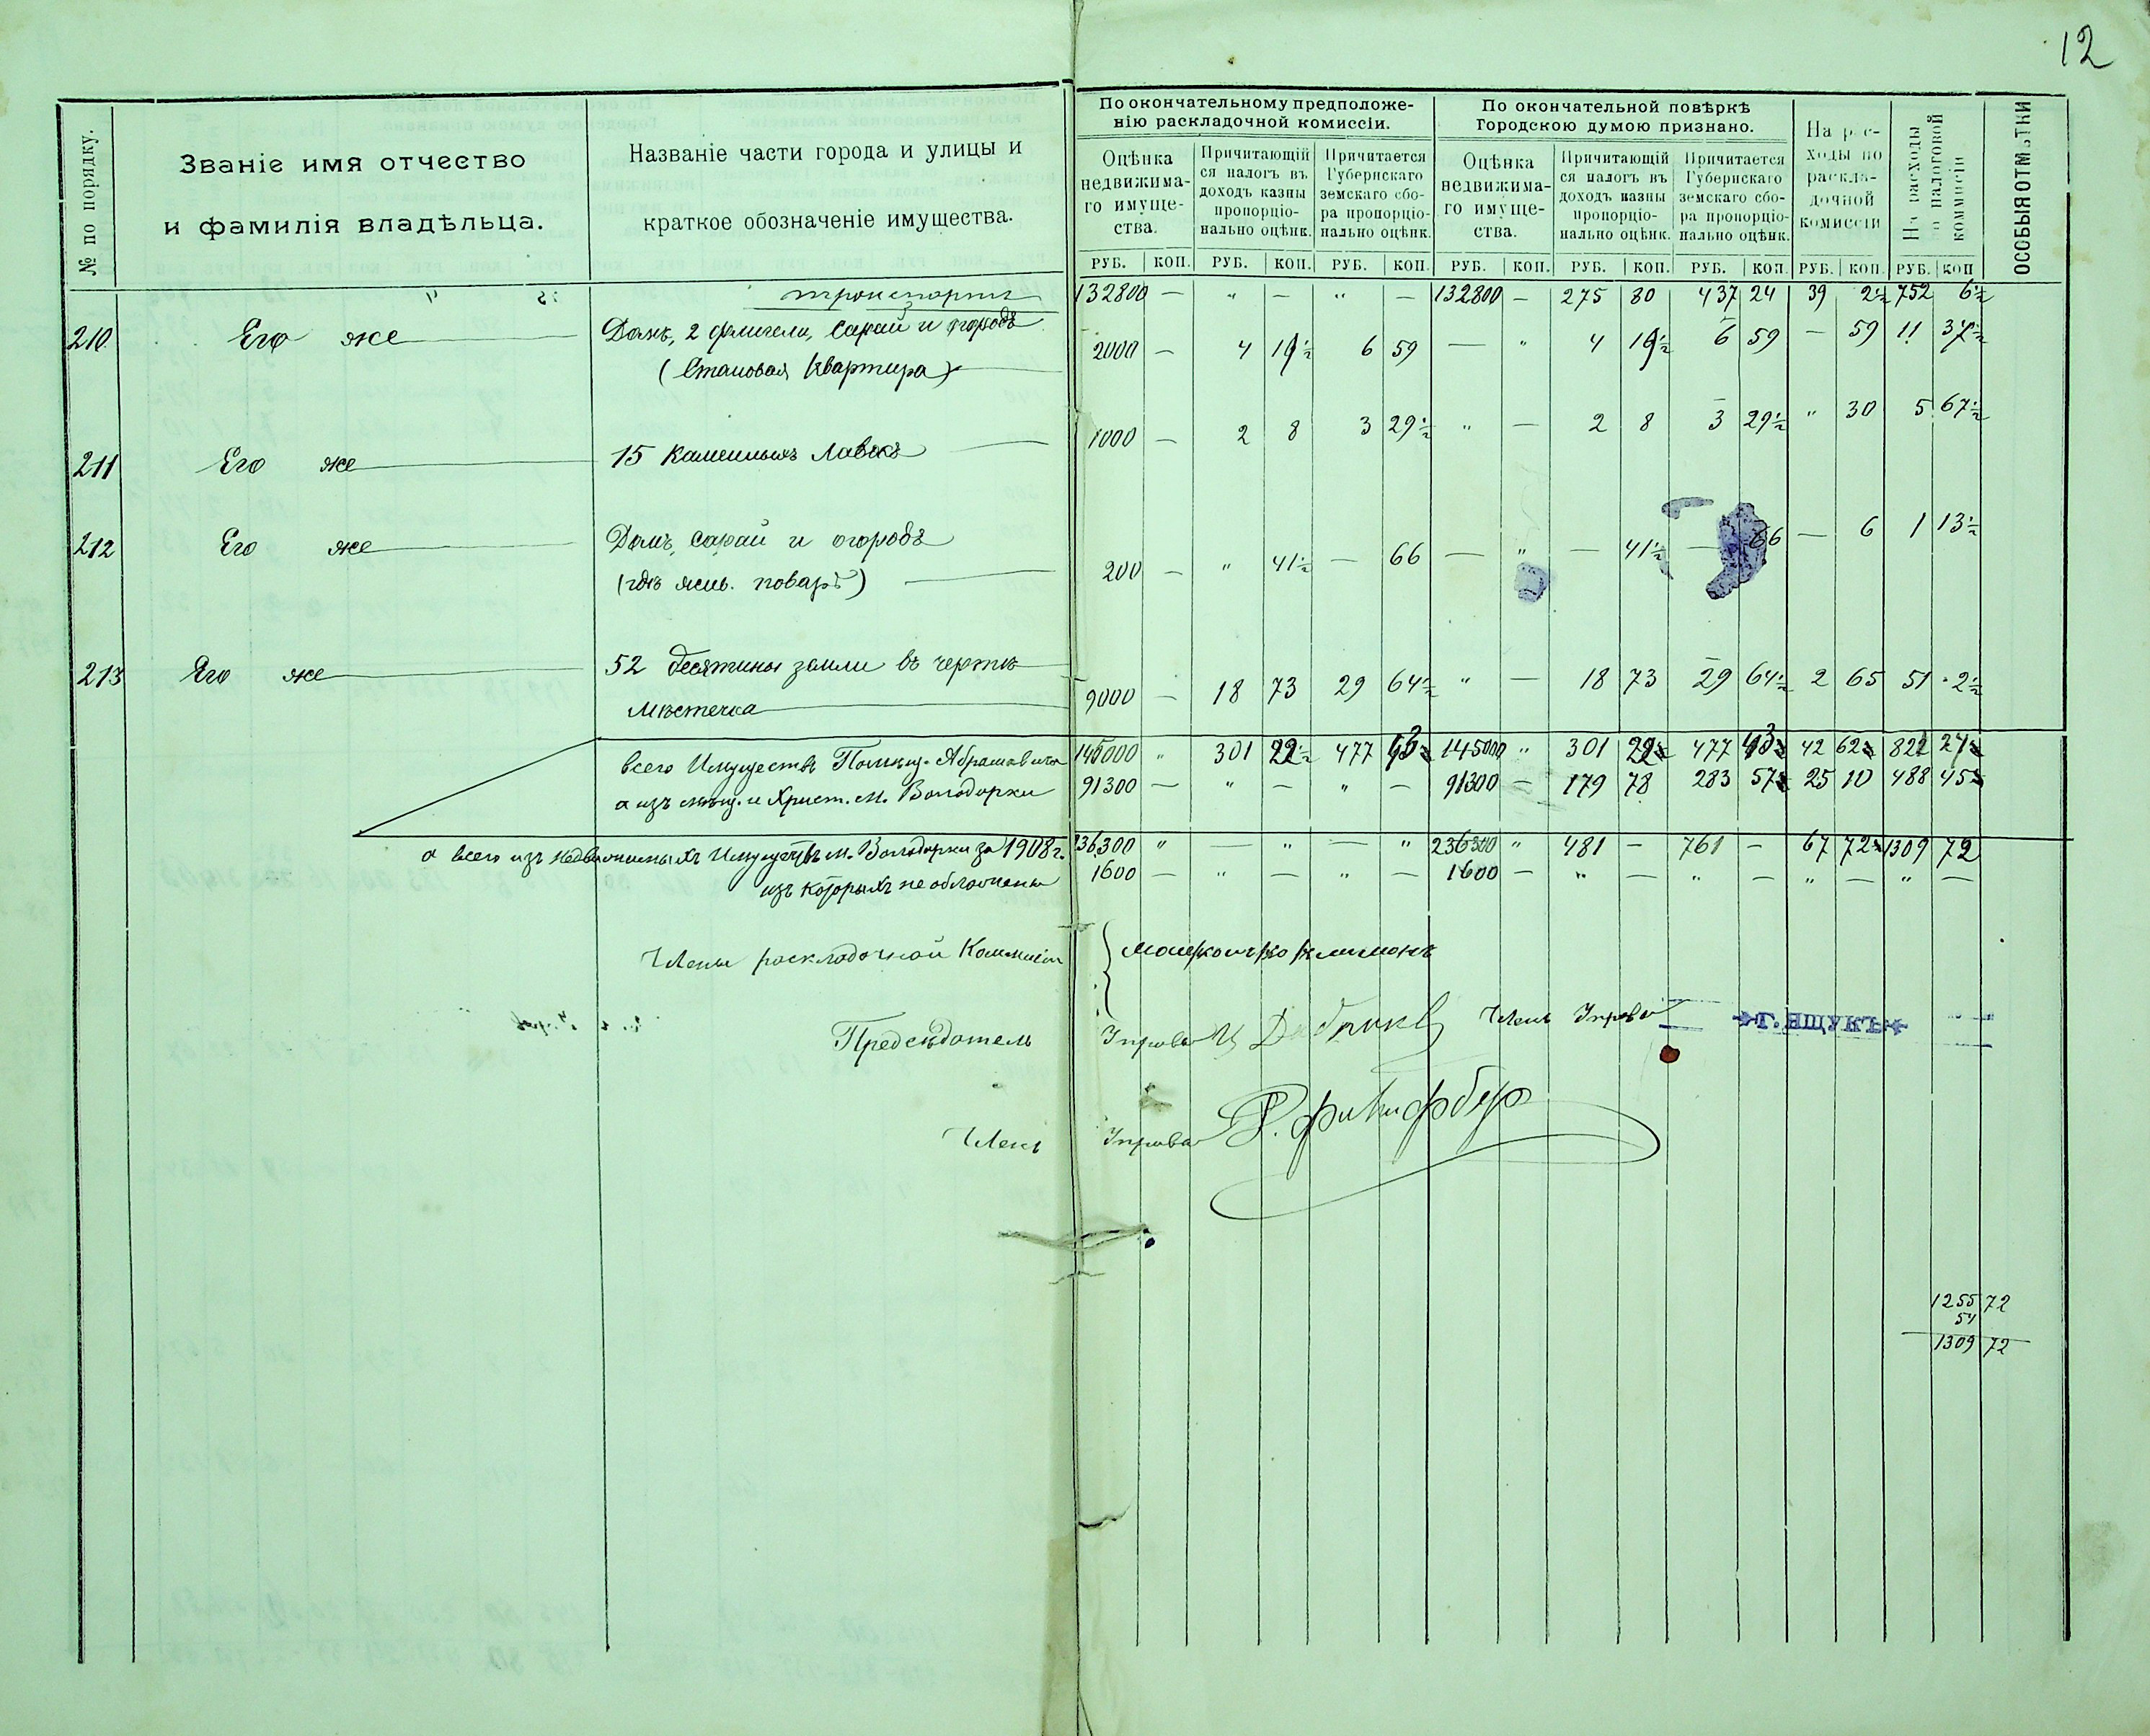 12
№ по порядку.
Званіе имя отчество
и фамилія владѣльца.
Названіе части города и улицы и
краткое обозначеніе имущества.
По окончательному предположе-
нію раскладочной комиссіи.
Оцѣнка
недвижима-
го имуще-
ства.
Причитающій
ся налогъ въ
доходъ казны
пропорціо-
нально оцѣнк.
Причитается
Губернскаго
земскаго сбо-
ра пропорціо-
нально оцѣнк.
По окончательной повѣркѣ
Городскою думою признано.
Оцѣнка
недвижима-
го имуще-
ства.
Причитающій
ся налогъ въ
доходъ казны
пропорціо-
нально оцѣнк.
Причитается
Губернскаго
земскаго сбо-
ра пропорціо-
нально оцѣнк.
На рас-
ходы по
раскла-
дочной
комиссіи
На расходы
по налоговой
коммисіи
ОСОБЫЯ ОТМѢТКИ
РУБ. КОП. РУБ. КОП. РУБ. КОП. РУБ. КОП. РУБ. КОП. РУБ. КОП. РУБ. КОП. РУБ. КОП
транспортъ 132800 — „ — „ — 132800 — 275 80 437 24 39 2½ 752 6½
210 Его же Домъ, 2 флигели, сарай и огородъ 2000 — 4 16½ 6 59 — „ 4 16½ 6 59 — 59 11 34½
(Становая квартира)
211 Его же 15 каменныхъ лавокъ 1000 — 2 8 3 29½ „ — 2 8 3 29½ „ 30 5 67½
212 Его же Домъ, сарай и огородъ 200 — „ 41½ — 66 — „ — 41½ — 66 — 6 1 13½
(гдѣ жив. поваръ)
213 Его же 52 десятины земли въ чертѣ
мѣстечка 9000 — 18 73 29 64½ „ — 18 73 29 64½ 2 65 51 2½
всего Имуществъ Помѣщ. Абрамовича 145000 „ 301 22½ 477 43 145000 „ 301 22 477 43 42 62 821 27
а изъ мѣщ. и Христ. м. Володарки 91300 — „ — „ — 91300 — 179 78 283 57 25 10 488 45
а всего изъ недвижимыхъ Имуществъ м. Володарки за 1908 г. 236300 „ — „ — „ 236300 „ 481 — 761 — 67 72 1309 72
изъ которыхъ не обложены 1600 — „ — „ — 1600 — „ — „ — „ — „ —
Члены раскладочной Коммисіи
Предсѣдатель Управы
Членъ Управы
Г. ЯЩУКЪ
Членъ Управы
1255 72
54
1309 72